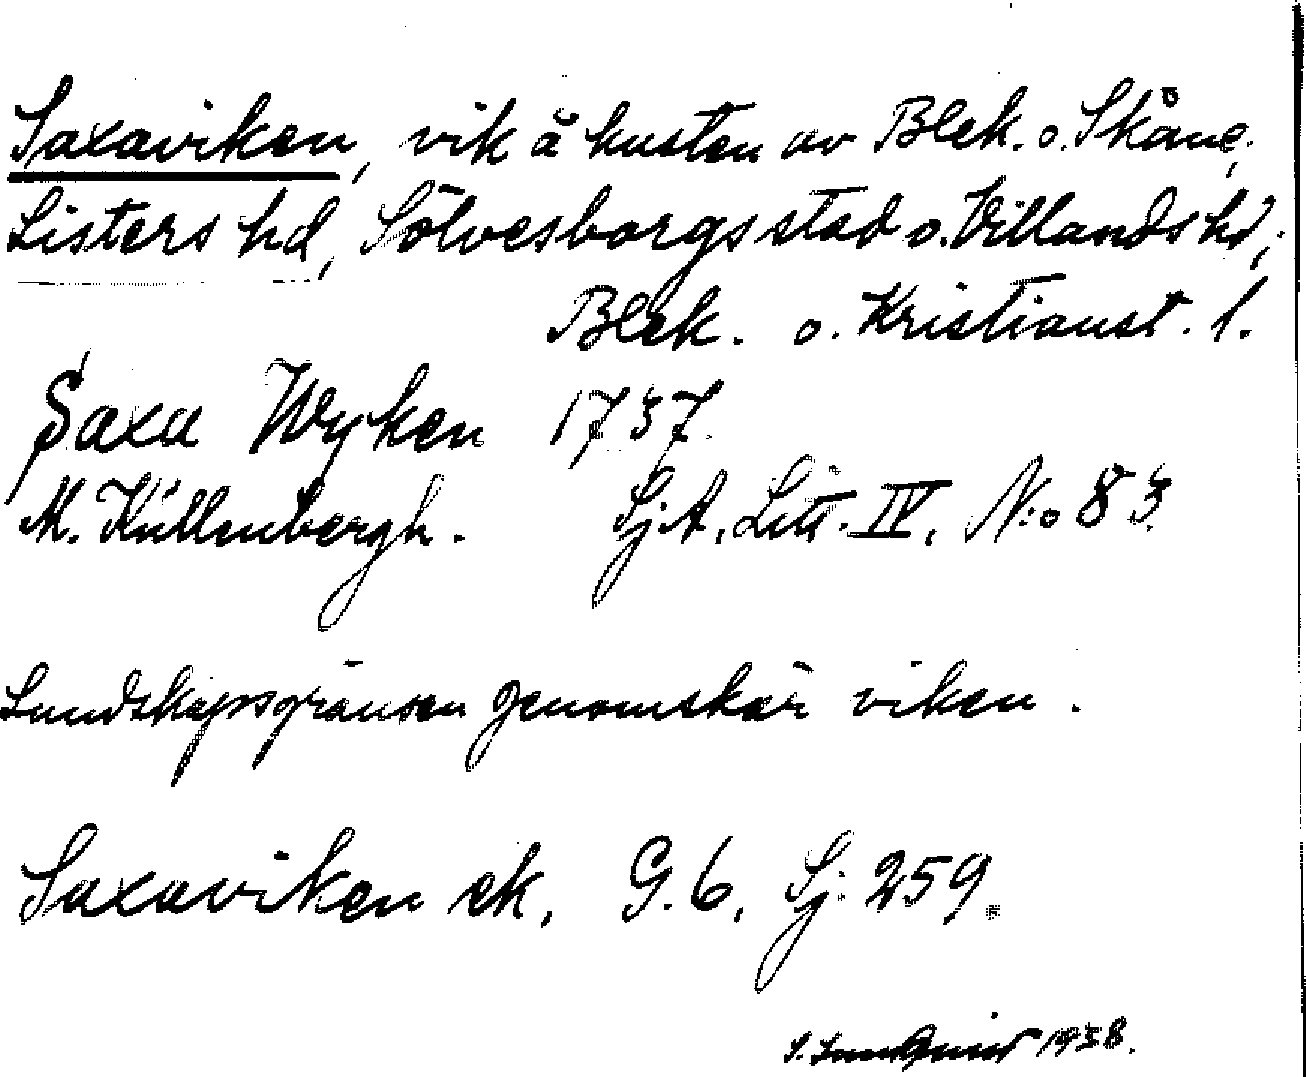 Saxaviken, vik å kusten av Blek. o. Skåne,
Listers hd, Sölvesborgs stad o. Villands hd;
Blek. o. Kristianst. l.
Saxa Wyken 1737.
M. Küllenbergh. Sj.A. Litt. IV. N:o 83.
Landskapsgränsen genomskär viken.
Saxaviken ek. G.6. Sj: 259.
1938.